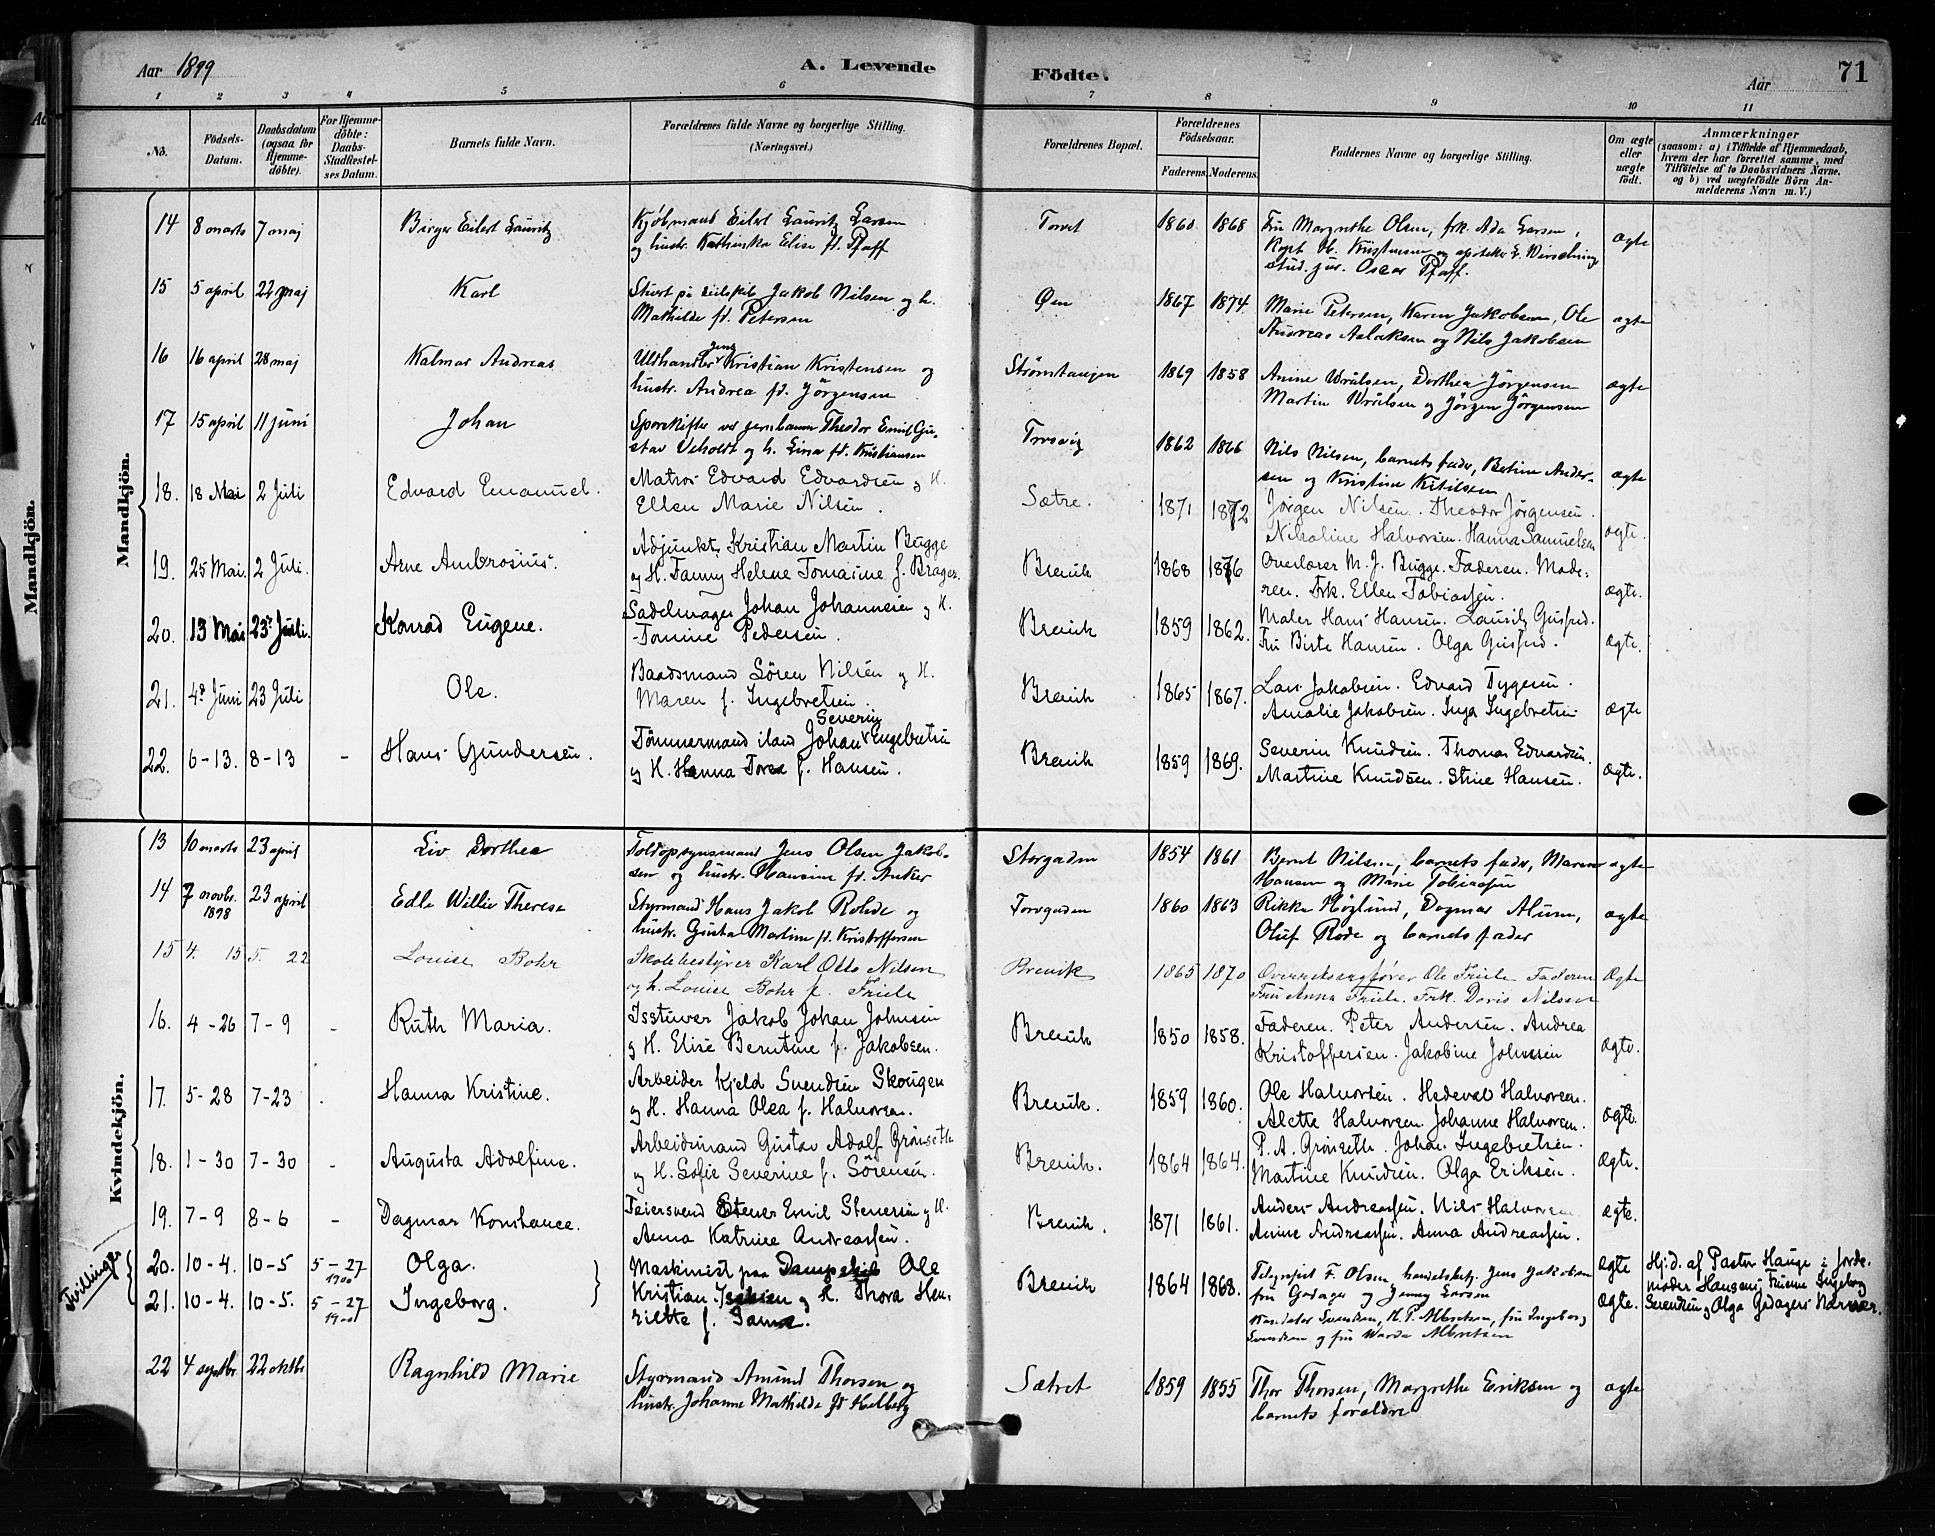 Aar 1899
A. Levende Födte.
Aar
71
1 2 3 4 5 6 7 8 9 10 11
No.
Födsels-Datum.
Daabsdatum (ogsaa for Hjemme-döbte).
For Hjemme-döbte: Daabs-Stadfæstel-ses Datum.
Barnets fulde Navn.
Forældrenes fulde Navne og borgerlige Stilling. (Næringsvei.)
Forældrenes Bopæl.
Forældrenes Födselsaar.
Faderens. Moderens.
Faddernes Navne og borgerlige Stilling.
Om ægte eller uægte födt.
Anmærkninger
(saasom: a) i Tilfælde af Hjemmedaab,
hvem der har forrettet samme, med
Tilföielse af to Daabsvidners Navne.
og b) ved uægtefödte Börn An-
melderens Navn m. V.)
Mandkjön.
Mandkjön.
14 8 marts 7 maj Birger Eilert Lauritz Kjøbmand Eilert Lauritz Larsen Torvet 1860 1868 Fru Margrethe Olsen, frk. Ada Larsen, ægte
og hustr. Kathinka Elise fd. Pfaff Kapt. Kristensen og apoteker
stud. jur. Oscar Pfaff.
15 5 april 22 maj Karl Stuert på seilskib Jakob Nilsen og h. Øen 1867 1874 Marie Petersen, Karen Jakobsen, Ole ægte
Mathilde fd. Petersen Andreas Aslaksen og Nils Jakobsen
16 16 april 28 maj Kalmar Andreas Uldhandler Jens Kristian Kristensen og Strømtangen 1869 1858 Anine Wrålsen, Dorthea Jörgensen ægte
hustr. Andrea fd. Jörgensen Martin Wrålsen og Jörgen Jörgensen
17 15 april 11 juni Johan Sporskifter ved jernbanen Theodor Emil Gu- Trosvig 1862 1866 Nils Nilsen, barnets fader, Betine Ander- ægte
stav Uholdt og h. Lina fd. Kristiansen sen og Kristine Ketilsen
18. 18 Mai 2 Juli Edvard Emanuel. Matros Edvard Edvardsen og H. Sætre. 1871 1872 Jørgen Nilsen. Theodor Jørgensen. ægte.
Ellen Marie Nilsen. Nikoline Halvorsen. Hanna Samuelsen
19. 25 Mai. 2 Juli. Arne Ambrosius. Adjunkt Kristian Martin Bugge Brevik 1868 1876 Overlærer M. J. Bugge. Faderen. Mode- ægte.
og H. Fanny Helene Tomasine f. Brager. ren. Frk. Ellen Tobiassen.
20. 13 Mai 23 Juli. Konrad Eugene. Sadelmager Johan Johannesen og H. Brevik 1859 1862. Maler Hans Hansen. Lauritz Gusfred. ægte.
Tomine Pedersen. Fru Birte Hansen. Olga Gusfred.
21. 4 Juni 23 Juli Ole. Baadsmand Sören Nilsen og H. Brevik 1865 1867. Lars Jakobsen. Edvard Tygesen. ægte
Maren f. Ingebretsen. Amalie Jakobsen. Inga Ingebretsen
22. 6-13. 8-13 - Hans Gundersen. Tömmermand iland Johan Severin Ingebretsen Brevik 1859 1869. Severin Knudsen. Thomas Edvardsen. ægte.
og H. Hanna Tora f. Hansen. Martine Knudsen. Stine Hansen.
Kvindekjön.
13 10 marts 23 april Liv Dorthea Toldopsynsmand Jens Olsen Jakob- Storgaden 1854 1861 Bernt Nilsen, barnets fader, Maren ægte
sen og hustr. Hansine fd. Anker Hansen og Marie Tobiassen
14 7 novbr. 1898 23 april Edle Willie Therese Styrmand Hans Jakob Rohde og Torvgaden 1860 1863 Rikka Höglund, Dagmar Alum, ægte
hustr. Gusta Martine fd. Kristoffersen Oluf Rode og barnets fader
15 4. 15 5. 22 Louise Bohr Skolebestyrer Karl Otto Nilsen Brevik 1865 1870 Overretssagfører Ole Friele Faderen Ægte
og h. Louise Bohr f. Friele Fru Anna Friele. Frk. Doris Nilssen
16. 4-26 7-9 - Ruth Maria. Isstuver Jakob Johan Johnsen Brevik 1850 1858. Faderen. Peter Andersen. Andrea ægte.
og H. Elise Berntine f. Jakobsen. Kristoffersen. Jakobine Johnsen
17. 5-28 7-23 . Hanna Kristine. Arbeider Kjeld Svendsen Skougen Brevik. 1859 1860. Ole Halvorsen. Hedeval Halvorsen. ægte.
og H. Hanna Olea f. Halvorsen. Alette Halvorsen. Johanne Halvorsen.
18. 1-30 7-30 - Augusta Adolfine. Arbeidsmand Gustav Adolf Grønseth Brevik. 1864 1864. P. A. Grønseth. Johan Ingebretsen. ægte.
og H. Sofie Severine f. Sörensen. Martine Knudsen. Olga Eriksen.
19. 7-9 8-6 - Dagmar Konstance. Feiersvend Stener Emil Stenersen og H. Brevik. 1871 1861. Anders Andreassen. Nils Halvorsen ægte.
Anna Katrine Andreassen. Anine Andreassen. Anna Andreassen.
Tvillinger
20. 10-4. 10-5 5-27 1900 Olga. Maskinist paa Dampskib Ole Brevik 1864 1868. Telegrafist F. Olsen, handelsbetj. Jens Jakobsen ægte Hj.d. af Pastor Hauge i Jorde-
21. 10-4. 10-5. 5-27 1900 Ingeborg. Kristian og H. Thora Hen- fru Godager og Jenny Larsen ægte. moder Hansens Fruene Ingeborg
riette f. Kandidat Svendsen, H. P. Albretsen, fru Ingeborg Svendsen og Olga Godagers Nærvær.
Svendsen og fru Warda Albretsen
22 4 septbr. 22 oktbr Ragnhild Marie Styrmand Amund Thorsen og Sætret 1859 1855 Thor Thorsen, Margrethe Eriksen og ægte
hustr. Johanne Mathilde fd. Helberg barnets forældre